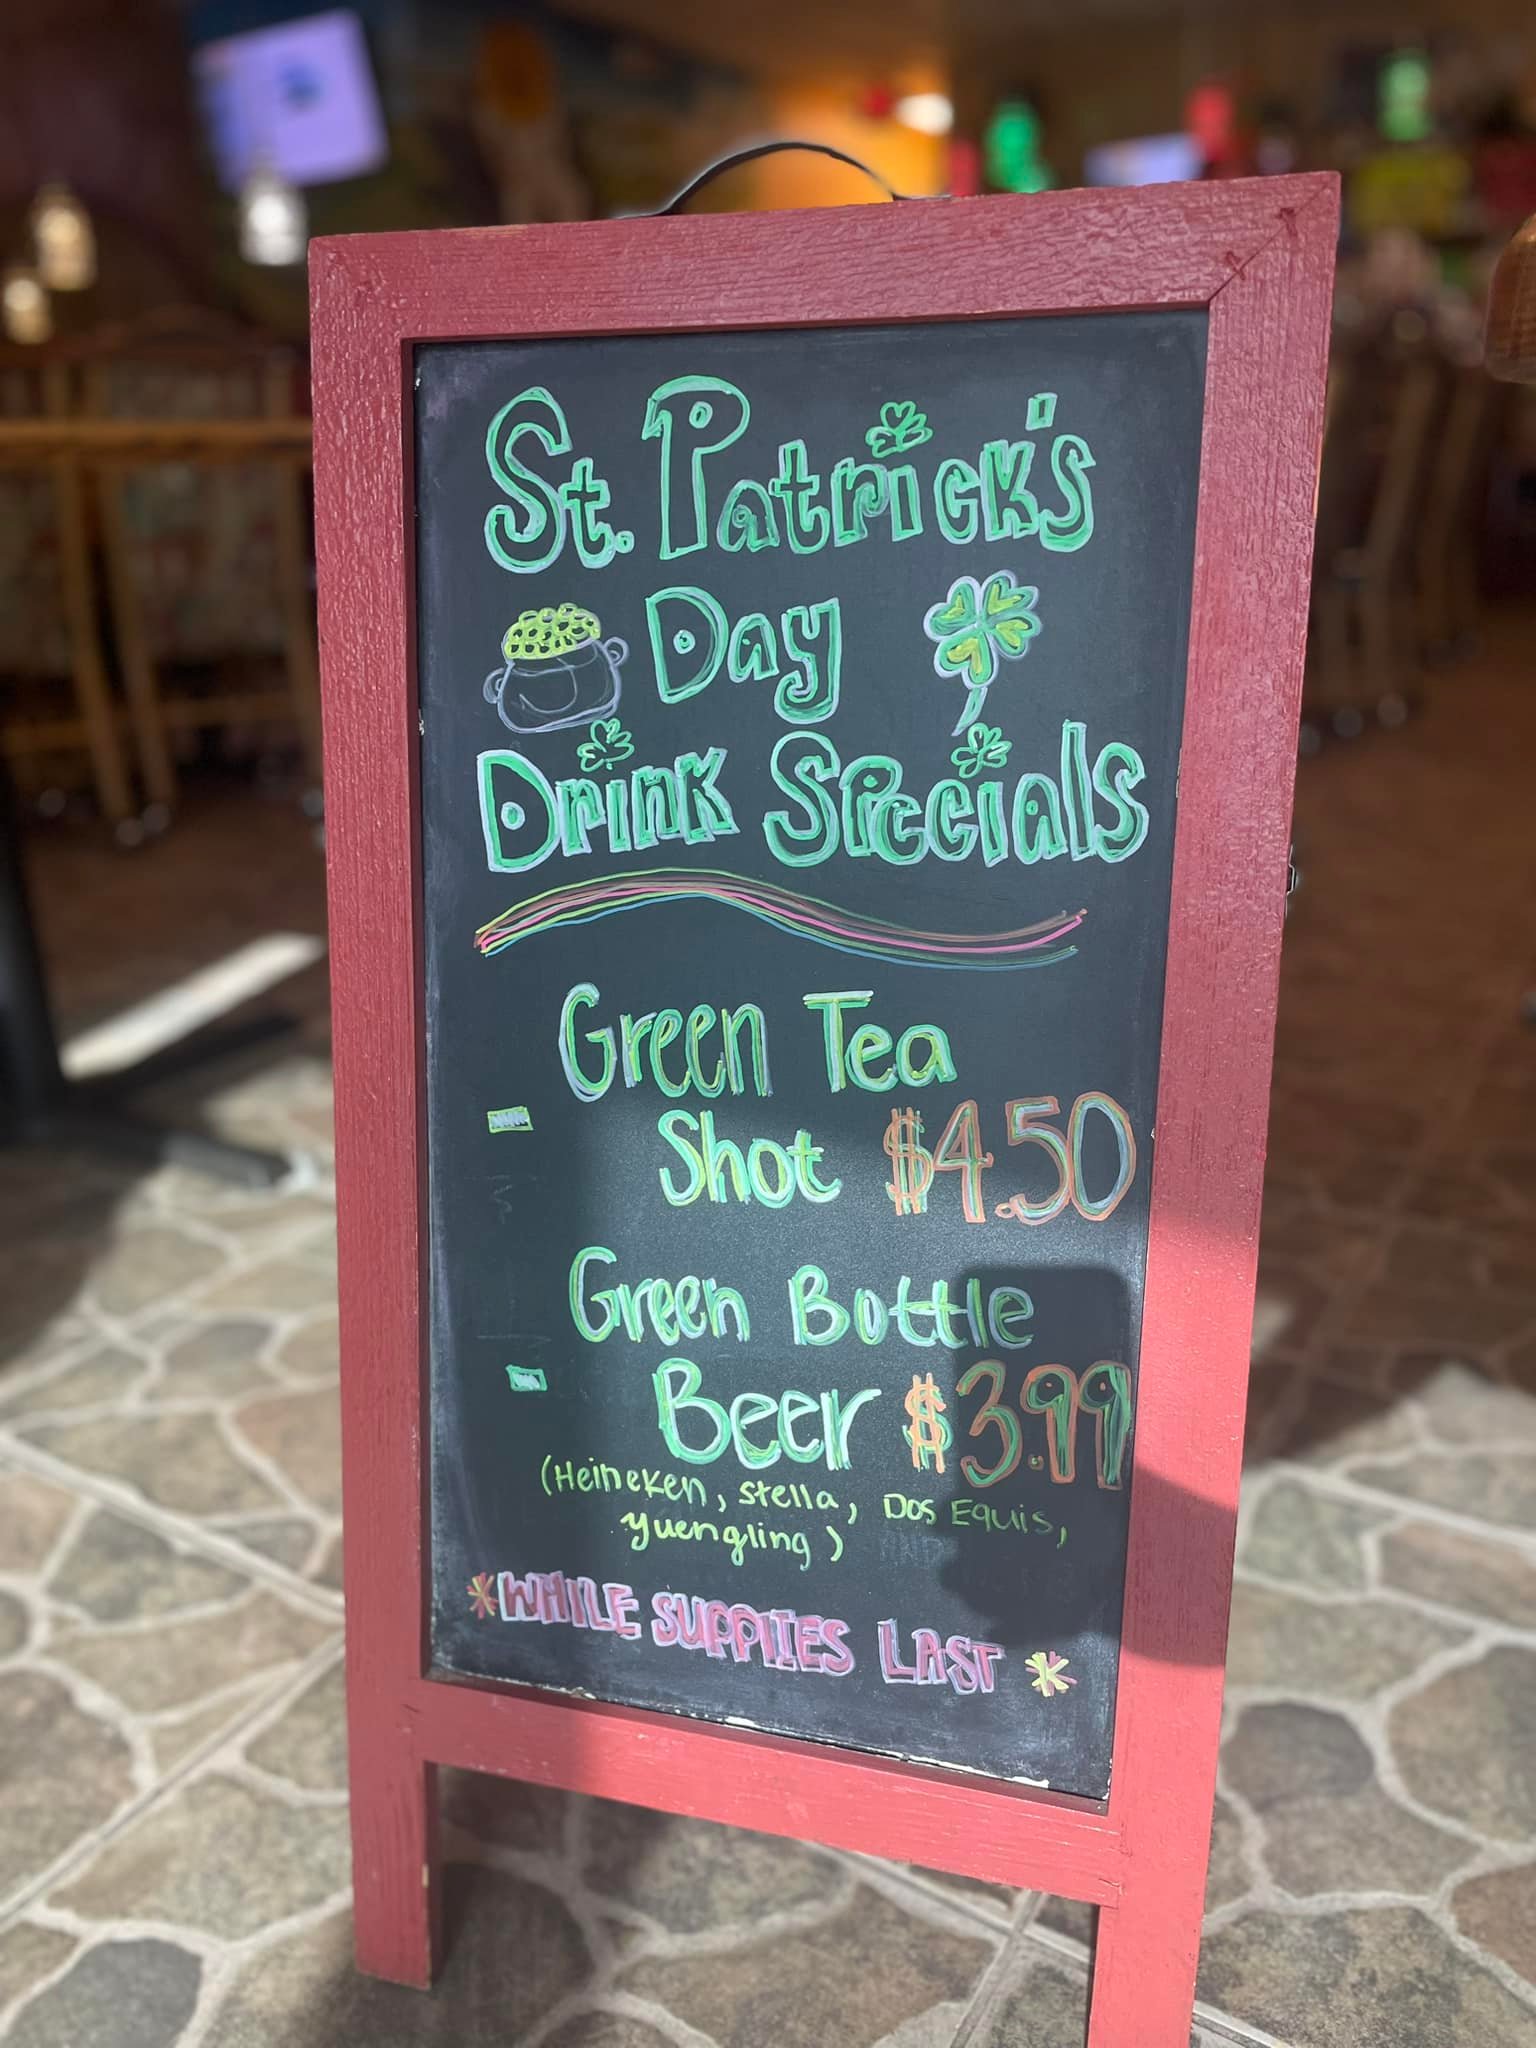 St. Patrick's
Day
Drink Specials
Green Tea
- Shot $4.50
Green Bottle
- Beer $3.99
(Heineken, stella, Dos Equis,
yuengling)
*WHILE SUPPLIES LAST *